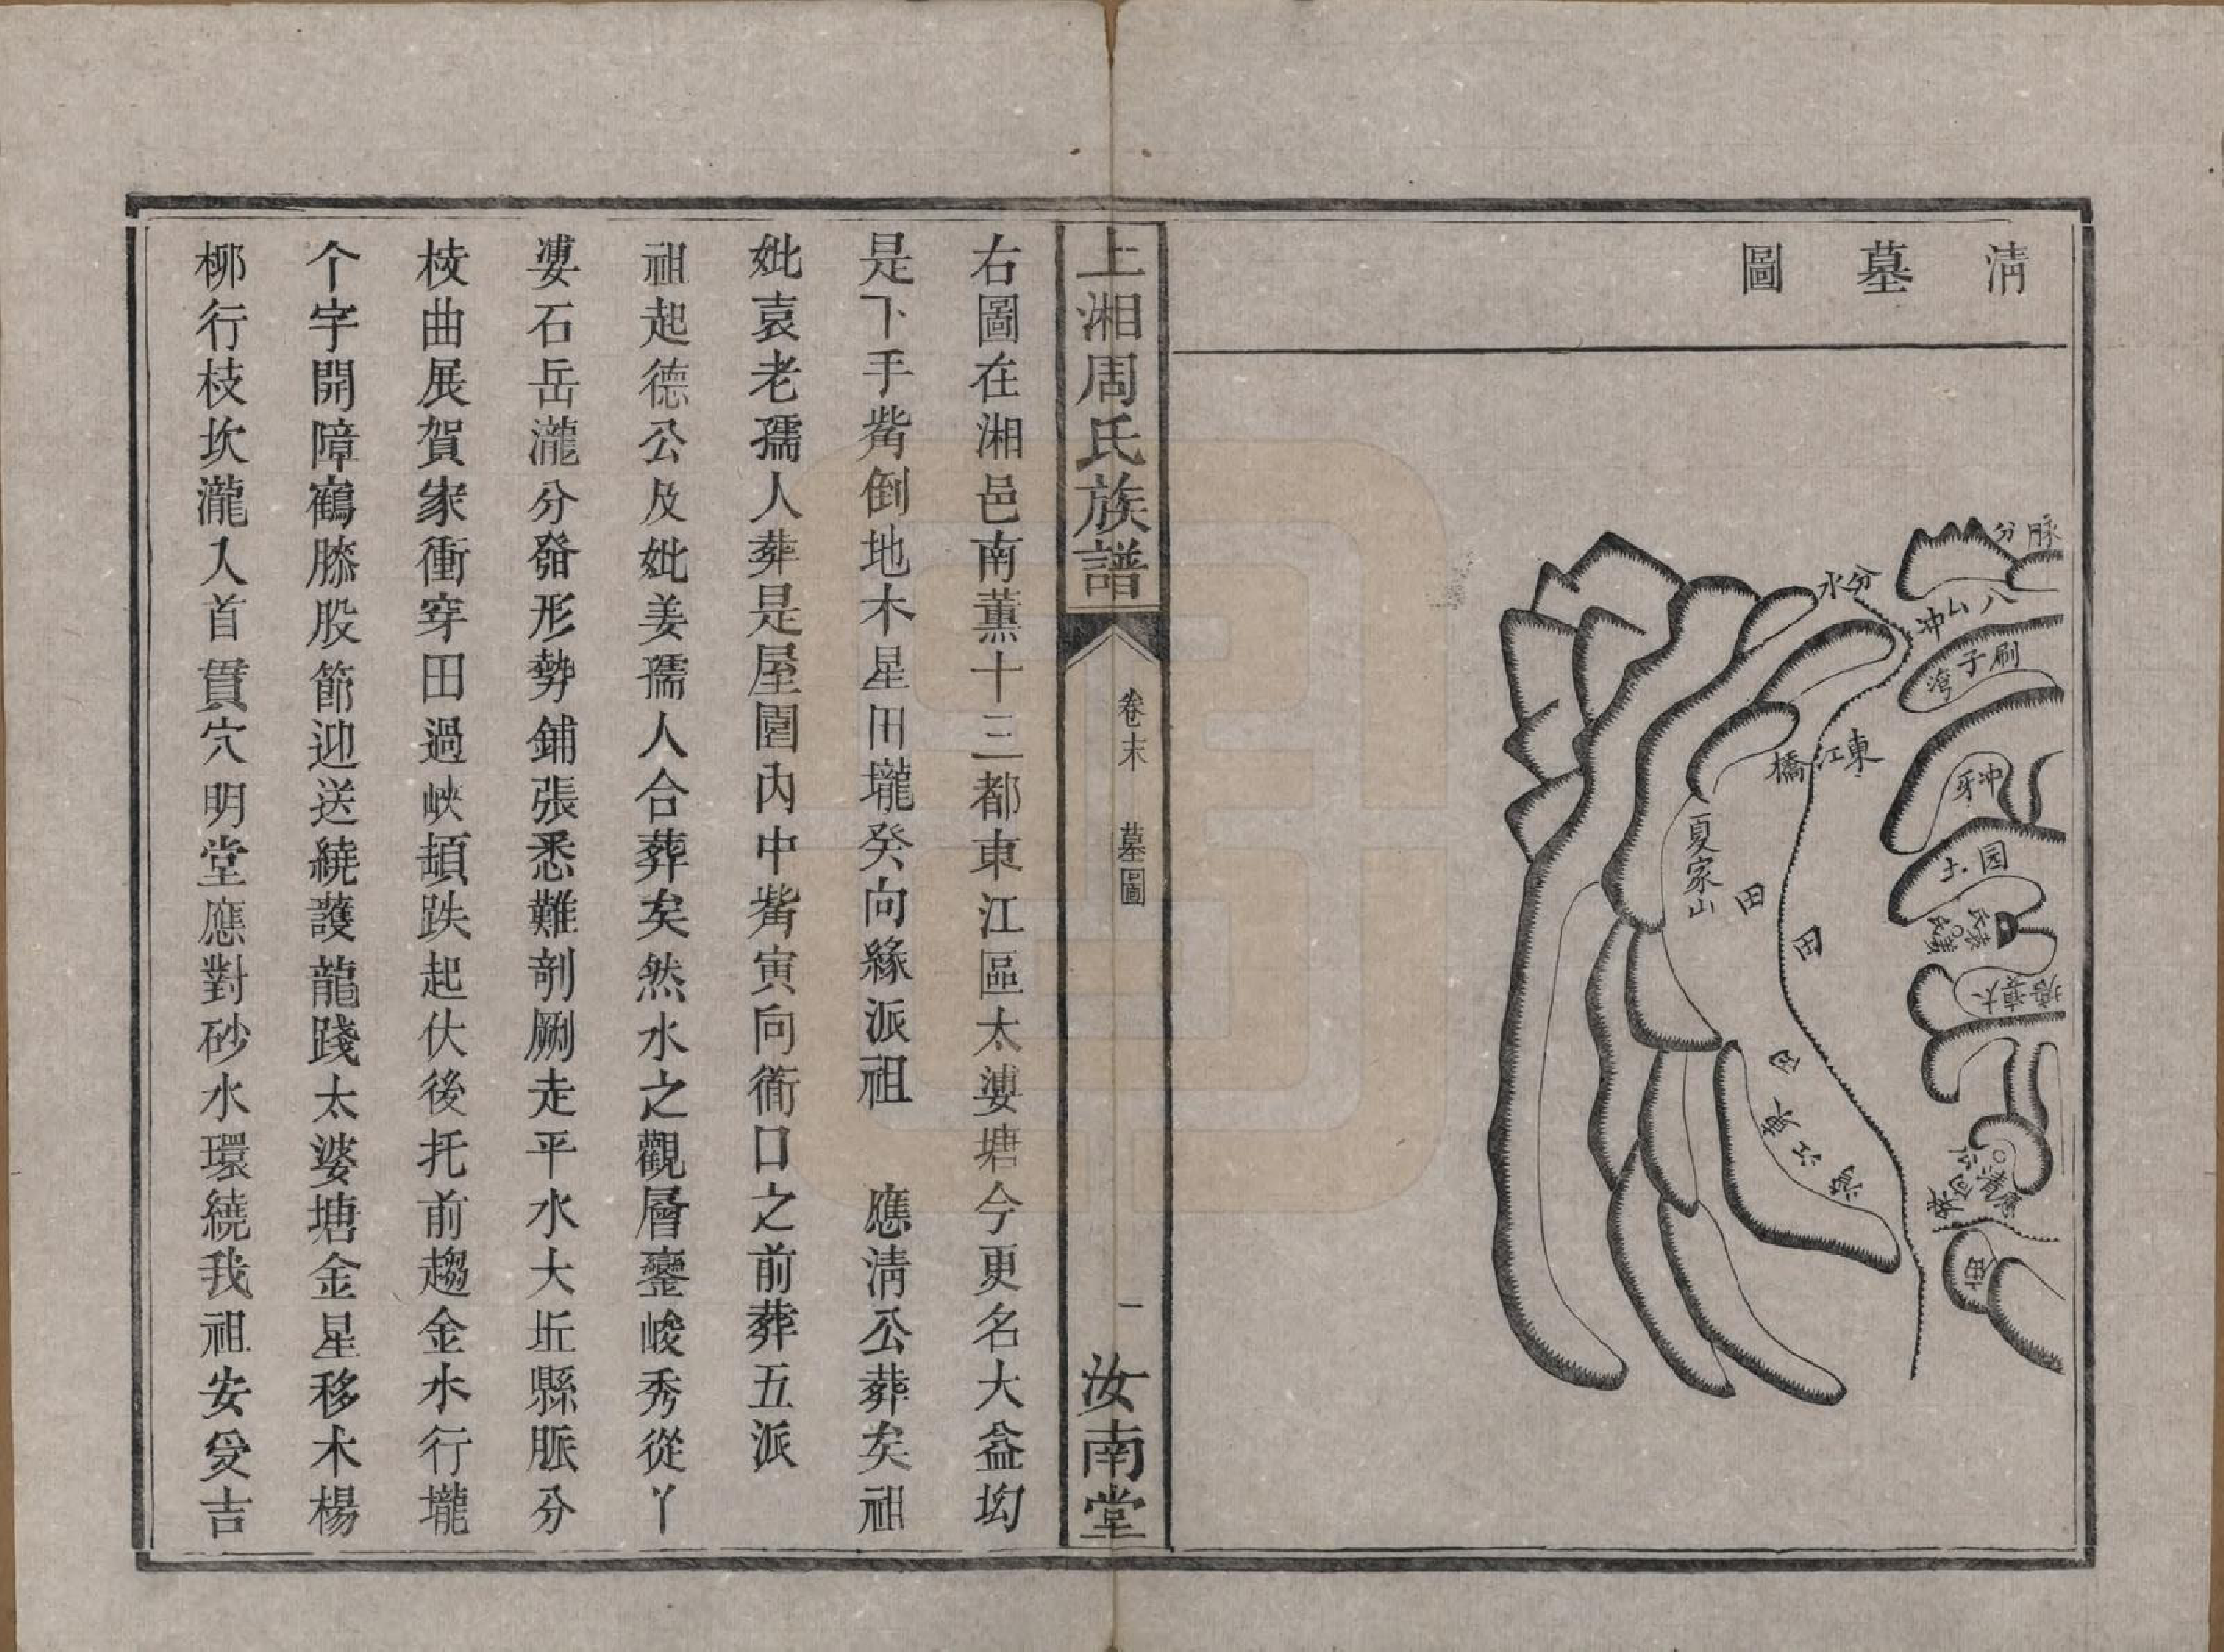 清墓圖
分脉
分水
八厶冲
刷子灣
東江橋
冲牙
夏家山
园土
田
田
田
東江灣
庙
上湘周氏族譜
卷末
墓圖
一
汝南堂
右圖在湘邑南薰十三都東江區太婆塘今更名大益坳
是下手觜倒地木星田壠癸向緣派祖 應清公葬矣祖
妣袁老孺人葬是屋圍內中觜寅向衕口之前葬五派
祖起德公及妣姜孺人合葬矣然水之觀層巒峻秀從丫
婆石岳瀧分發形勢鋪張悉難剖劂走平水大坵縣脈分
枝曲展賀家衝穿田過峽頓跌起伏後托前趨金水行壠
个字開障鶴膝股節迎送繞護龍踐太婆塘金星移木楊
柳行枝坎瀧入首貫穴明堂應對砂水環繞我祖安受吉